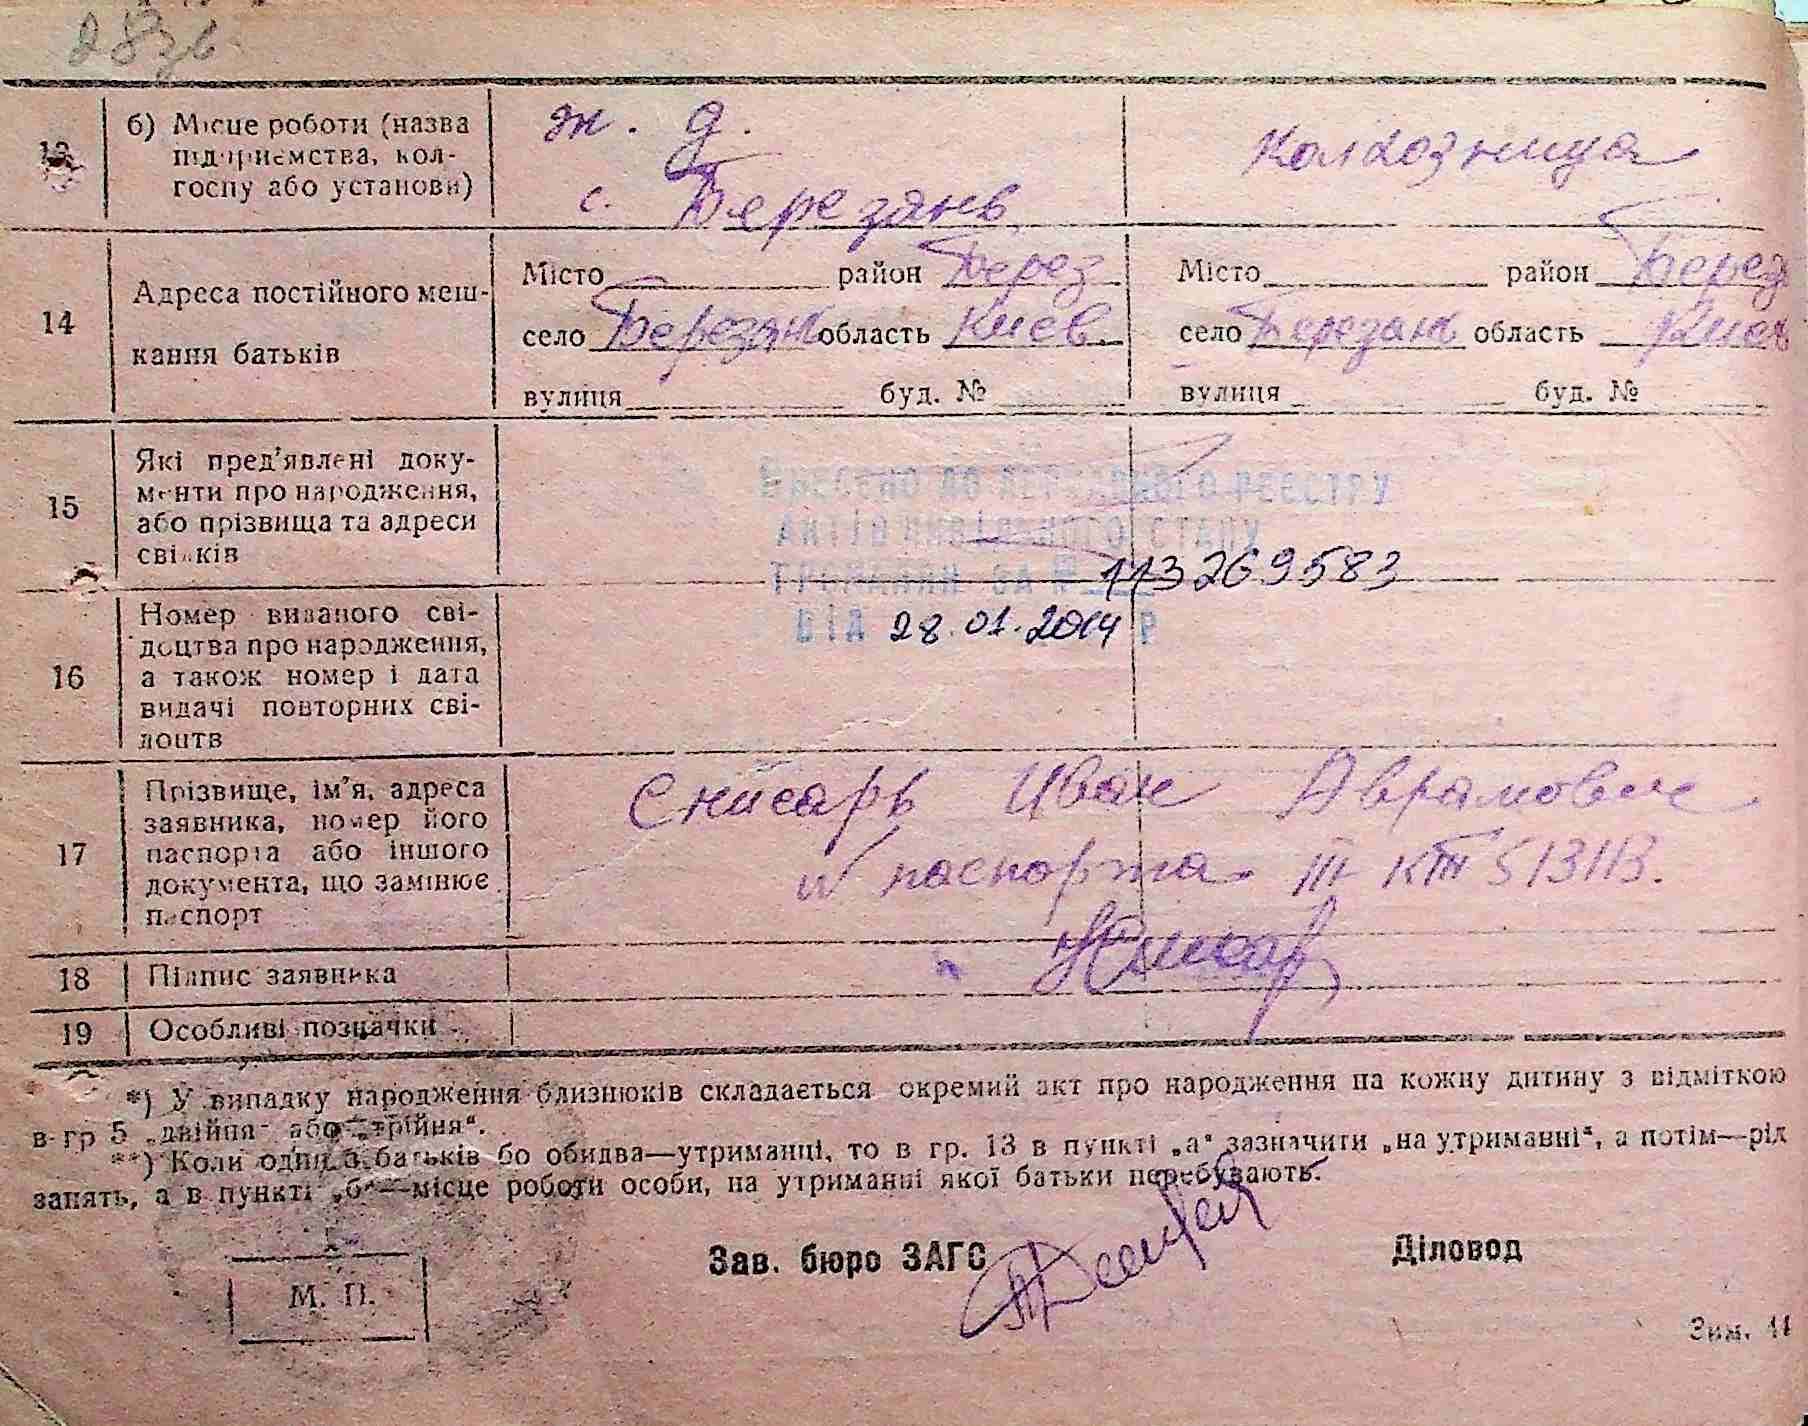 283в
13 б) Місце роботи (назва підприємства, колгоспу або установи)
ж. д.
с. Березань
колхозница
14 Адреса постійного мешкання батьків
Місто район Берез
село Березань область Киев.
вулиця буд. №
Місто район Берез
село Березань область Киев
вулиця буд. №
15 Які пред'явлені документи про народження, або прізвища та адреси свідків
ВНЕСЕНО ДО ДЕРЖАВНОГО РЕЄСТРУ
АКТІВ ЦИВІЛЬНОГО СТАНУ
ГРОМАДЯН ЗА № 113269583
ВІД 28.01.2014 Р
16 Номер виданого свідоцтва про народження, а також номер і дата видачі повторних свідоцтв
17 Прізвище, ім'я, адреса заявника, номер його паспорта або іншого документа, що замінює паспорт
Снисарь Иван Аврамович
№ паспорта III КТ 513113.
18 Підпис заявника
19 Особливі позначки
*) У випадку народження близнюків складається окремий акт про народження на кожну дитину з відміткою
в гр 5 „двійня“ або „трійня“.
**) Коли один з батьків бо обидва—утриманці, то в гр. 13 в пункті „а“ зазначити „на утриманні“, а потім—рід
занять, а в пункті „б“—місце роботи особи, на утриманні якої батьки перебувають.
Зав. бюро ЗАГС
Діловод
М. П.
Зам. 11